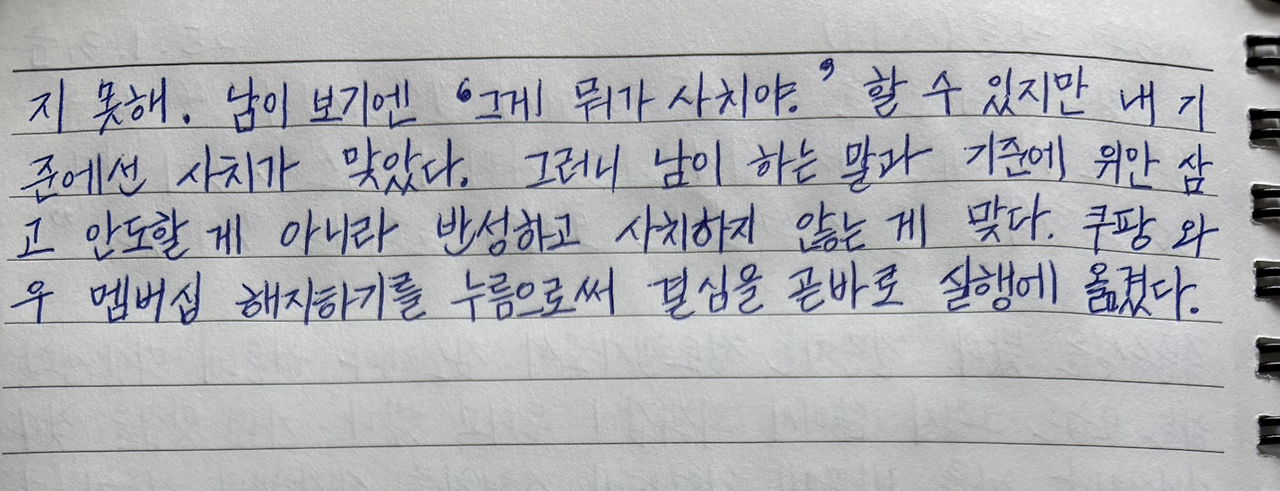 지 못해. 남이 보기엔 '그게 뭐가 사치야.' 할 수 있지만 내 기
준에선 사치가 맞았다. 그러니 남이 하는 말과 기준에 위안 삼
고 안도할 게 아니라 반성하고 사치하지 않는 게 맞다. 쿠팡 와
우 멤버십 해지하기를 누름으로써 결심을 곧바로 실행에 옮겼다.